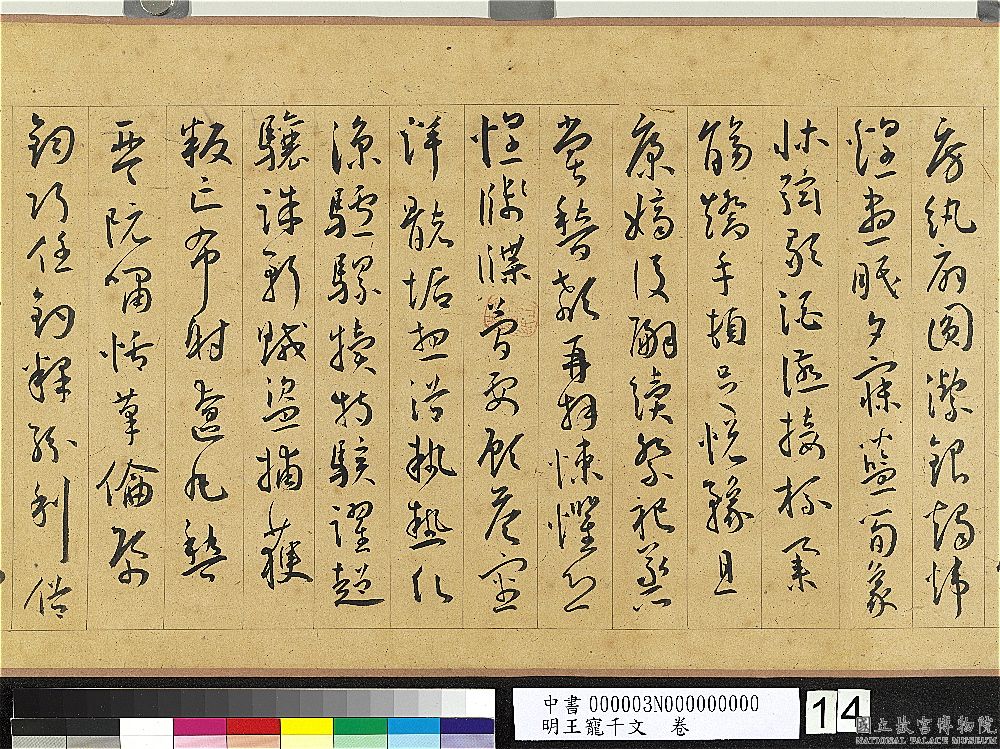 房紈扇圓潔銀燭煒
煌晝眠夕寐藍笋象
床弦歌酒讌接杯舉
觴矯手頓足悅豫且
康嫡後嗣續祭祀蒸
嘗稽顙再拜悚懼恐
惶牋牒簡要顧答審
詳骸垢想浴執熱願
涼驢騾犢特駭躍超
驤誅斬賊盜捕獲
叛亡布射遼丸嵇
琴阮嘯恬筆倫紙
鈞巧任釣釋紛利俗
中書 000003N000000000
明王寵千文 卷
14
國立故宮博物院
NATIONAL PALACE MUSEUM